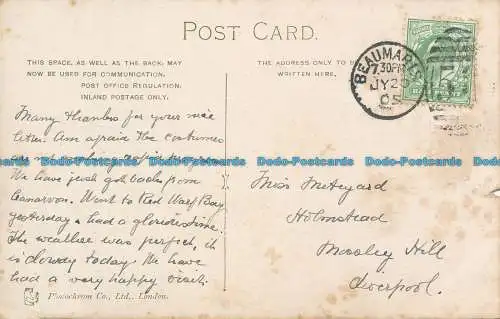 POST CARD.
THIS SPACE, AS WELL AS THE BACK, MAY
NOW BE USED FOR COMMUNICATION.
POST OFFICE REGULATION.
INLAND POSTAGE ONLY.
THE ADDRESS ONLY TO BE
WRITTEN HERE.
BEAUMARIS
7.30PM
JY 2
05
Many thanks for your nice
letter. Am afraid the costumes
Bodo-Postcards.com Bodo-Postcards.com Bodo-Postcards.com Bodo-Postcards.com
We have just got back from
Carnarvon. Went to Red Warf Bay
yesterday & had a glorious time.
The weather was perfect, it
is cloudy today. We have
had a very happy visit.
Miss Meteyard
Holmstead
Mossley Hill
Liverpool.
Photochrom Co., Ltd., London.